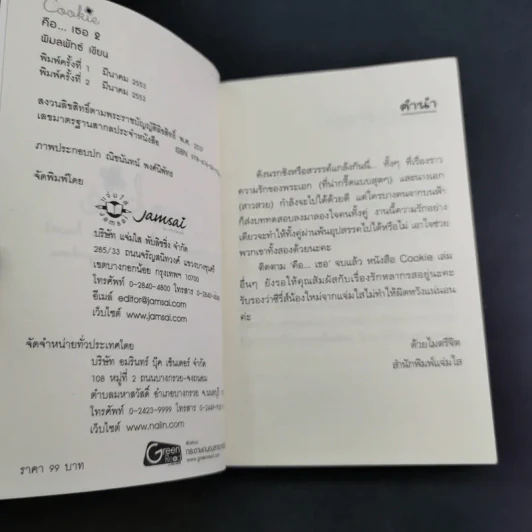 Cookie
คือ... เธอ 2
พิมลพักธ์ เขียน
พิมพ์ครั้งที่ 1 มีนาคม 2552
พิมพ์ครั้งที่ 2 มีนาคม 2552
สงวนลิขสิทธิ์ตามพระราชบัญญัติลิขสิทธิ์ พ.ศ. 2537
เลขมาตรฐานสากลประจำหนังสือ
ภาพประกอบปก ณิชนันทน์ พงศ์นิพัทธ
จัดพิมพ์โดย
Jamsai
บริษัท แจ่มใส พับลิชชิ่ง จำกัด
285/33 ถนนจรัญสนิทวงศ์ แขวงบางขุนศรี
เขตบางกอกน้อย กรุงเทพฯ 10700
โทรศัพท์ 0-2840-4800 โทรสาร
อีเมล์ editor@jamsai.com
เว็บไซต์ www.jamsai.com
จัดจำหน่ายทั่วประเทศโดย
บริษัท อมรินทร์ บุ๊ค เซ็นเตอร์ จำกัด
108 หมู่ที่ 2 ถนนบางกรวย-จงถนอม
ตำบลมหาสวัสดิ์ อำเภอบางกรวย จ.นนทบุรี
โทรศัพท์ 0-2423-9999 โทรสาร
เว็บไซต์ www.naiin.com
Green
ราคา 99 บาท
คำนำ
ดังนรกชังหรือสวรรค์แกล้งกันนี่... ทั้งๆ ที่เรื่องราว
ความรักของพระเอก (ที่น่ากรี๊ดแบบสุดๆ) และนางเอก
(สาวสวย) กำลังจะไปได้ด้วยดี แต่ใครบางคนจากบนฟ้า
ก็ส่งบททดสอบลงมาลองใจคนทั้งคู่ งานนี้ความรักอย่าง
เดียวจะทำให้ทั้งคู่ผ่านพ้นอุปสรรคไปได้หรือไม่ เอาใจช่วย
พวกเขาทั้งสองด้วยนะคะ
ติดตาม ‘คือ... เธอ’ จบแล้ว หนังสือ Cookie เล่ม
อื่นๆ ยังรอให้คุณสัมผัสกับเรื่องรักหลากรสอยู่นะคะ
รับรองว่าซีรี่ส์น้องใหม่จากแจ่มใสไม่ทำให้ผิดหวังแน่นอน
ค่ะ
ด้วยไมตรีจิต
สำนักพิมพ์แจ่มใส